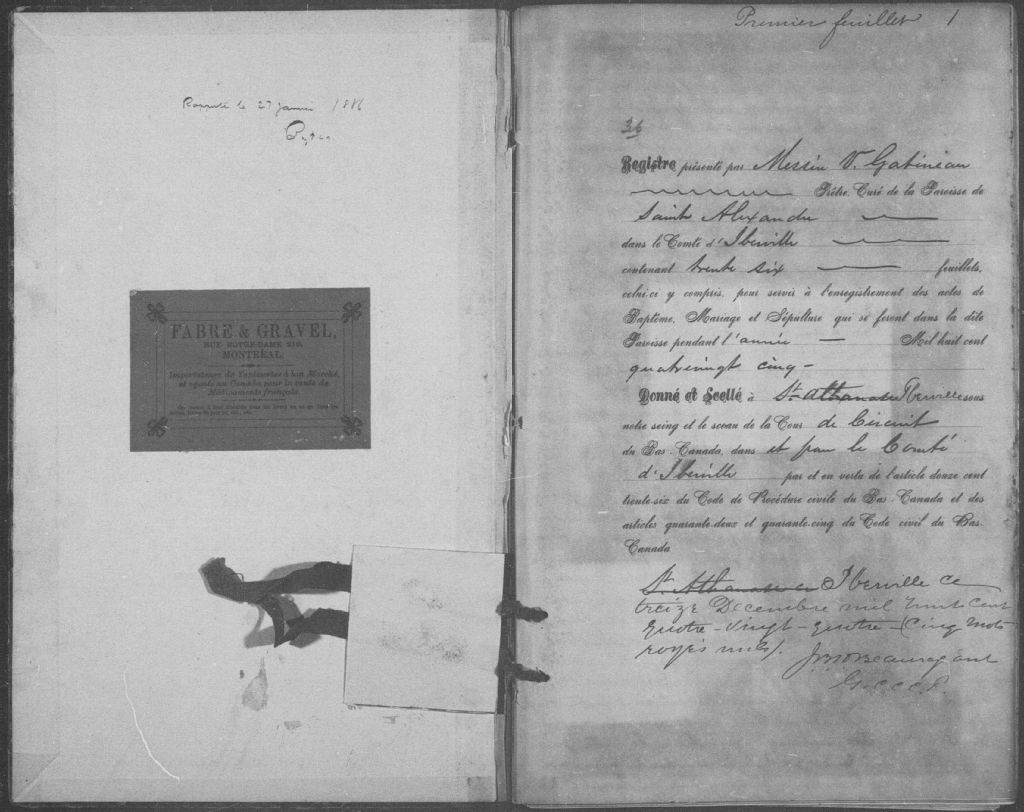 Rapporté le 27 janvier 1886
FABRE & GRAVEL,
RUE NOTRE-DAME 219,
MONTREAL.
Importateurs de Tapisseries à bon Marché,
et agents au Canada pour la vente de
Médicaments français.
Premier feuillet 1
36
Registre présenté par Messire V. Gatineau
Prêtre, Curé de la Paroisse de
Saint Alexandre
dans le Comté d'Iberville
contenant trente six feuillets,
celui-ci y compris, pour servir à l'enregistrement des actes de
Baptême, Mariage et Sépulture qui se feront dans la dite
Paroisse pendant l'année Mil huit cent
quatrevingt cinq -
Donné et Scellé à St Athanase Iberville sous
notre seing et le sceau de la Cour de Circuit
du Bas-Canada, dans et pour le Comté
d'Iberville par et en vertu de l'article douze cent
trente-six du Code de Procédure civile du Bas-Canada et des
articles quarante-deux et quarante-cinq du Code civil du Bas-
Canada
St Athanase Iberville ce
treize Decembre mil huit cent
quatre-vingt-quatre - (cinq mots
rayés nuls).
Beauregard
G. C. C. C. I.